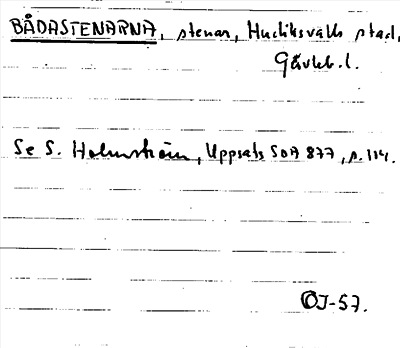 BÅDASTENARNA, stenar, Hudiksvalls stad,
Gävleb. l.
Se S. Holmström, Uppsats SOA 877, s. 114.
OJ-57.